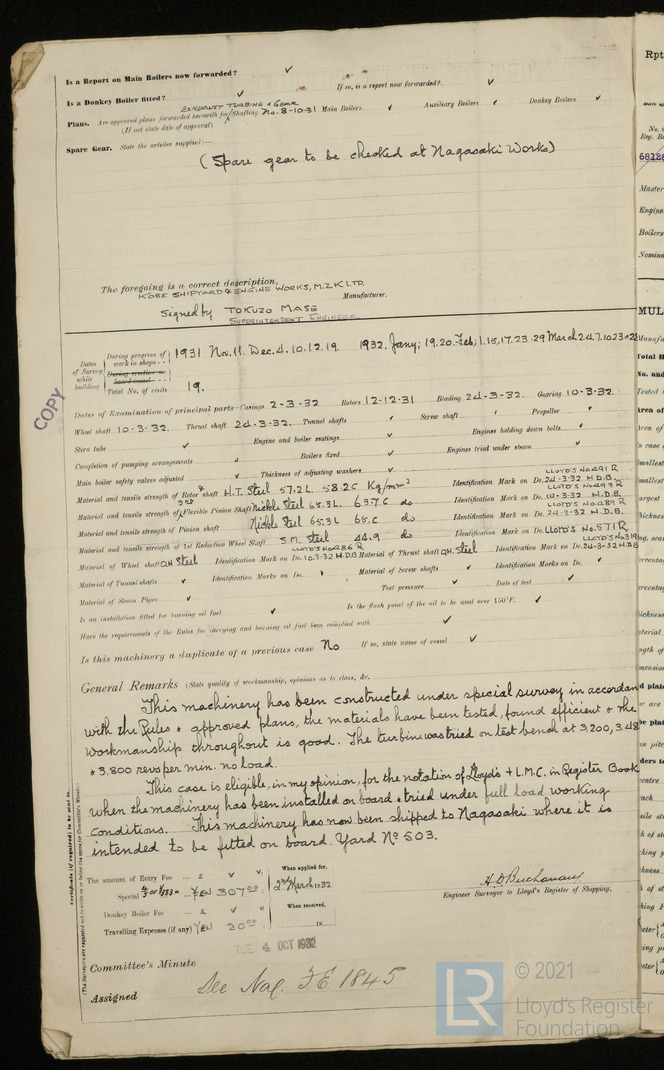 Is a Report on Main Boilers now forwarded? ✓ If so, is a report now forwarded? ✓
Is a Donkey Boiler fitted? ✓
EXHAUST TURBINE & GEAR
Plans. Are approved plans forwarded herewith for Shafting No. 8-10-31 Main Boilers ✓ Auxiliary Boilers ✓ Donkey Boilers ✓
(If not state date of approval)
Spare Gear. State the articles supplied:—
(Spare gear to be checked at Nagasaki Works)
The foregoing is a correct description,
KOBE SHIPYARD & ENGINE WORKS, M.Z.K LTD.
Manufacturer.
Signed by TOKUZO MASE
SUPERINTENDENT ENGINEER
COPY
Dates of Survey while building
During progress of work in shops - - 1931 Nov. 11. Dec. 4. 10. 12. 19. 1932. Jany; 19. 20. Feb; 1. 15, 17. 23. 29 March 2.4.7.10.23
During erection on board vessel - - -
Total No. of visits 19.
Dates of Examination of principal parts—Casings 2-3-32 Rotors 12-12-31 Blading 24-3-32. Gearing 10-3-32.
Wheel shaft 10-3-32. Thrust shaft 24-3-32. Tunnel shafts ✓ Screw shaft ✓ Propeller ✓
Stern tube ✓ Engine and boiler seatings ✓ Engines holding down bolts ✓
Completion of pumping arrangements ✓ Boilers fixed ✓ Engines tried under steam ✓
Main boiler safety valves adjusted ✓ Thickness of adjusting washers ✓
Material and tensile strength of Rotor shaft H.T. Steel 57.2 L. 58.2 C Kg/mm² Identification Mark on Do. LLOYD'S No 491 R 24-3-32 H.D.B.
Material and tensile strength of Flexible Pinion Shaft Nickle Steel 65.3 L. 63.7 C do Identification Mark on Do. LLOYD'S No 493 R 10-3-32 H.D.B.
Material and tensile strength of Pinion shaft Nickle Steel 65.3 L 65.C do Identification Mark on Do. LLOYD'S No 489 R 24-3-32 H.D.B.
Material and tensile strength of 1st Reduction Wheel Shaft S.M. Steel 44.9 do Identification Mark on Do. LLOYD'S No. 571 R
Material of Wheel shaft O.H Steel Identification Mark on Do. LLOYD'S No 486 R 10.3-32 H.D.B Material of Thrust shaft O.H. Steel Identification Mark on Do. 24-3-32 H.D.B
Material of Tunnel shafts ✓ Identification Marks on Do. ✓ Material of Screw shafts ✓ Identification Marks on Do. ✓
Material of Steam Pipes ✓ Test pressure ✓ Date of test ✓
Is an installation fitted for burning oil fuel ✓ Is the flash point of the oil to be used over 150°F. ✓
Have the requirements of the Rules for carrying and burning oil fuel been complied with ✓
Is this machinery a duplicate of a previous case No If so, state name of vessel ✓
General Remarks (State quality of workmanship, opinions as to class, &c.
This machinery has been constructed under special survey in accordan
with the Rules & approved plans, the materials have been tested, found efficient & the
workmanship throughout is good. The turbine was tried on test bench at 3,200, 3,48
& 3,800 revs per min. no load.
This case is eligible, in my opinion, for the notation of Lloyd's + L.M.C. in Register Book
when the machinery has been installed on board & tried under full load working
conditions. This machinery has now been shipped to Nagasaki where it is
intended to be fitted on board. Yard No 503.
The amount of Entry Fee ... £ ✓ ✓ When applied for,
Special ... YEN 307.00 2nd March 1932
Donkey Boiler Fee ... £ ✓ ✓ When received,
Travelling Expenses (if any) YEN 20.00 19
H D Buchanan
Engineer Surveyor to Lloyd's Register of Shipping.
TUE 4 OCT 1932
Committee's Minute
Assigned See Nag. F.E. 1845
© 2021
Lloyd's Register
Foundation
LR